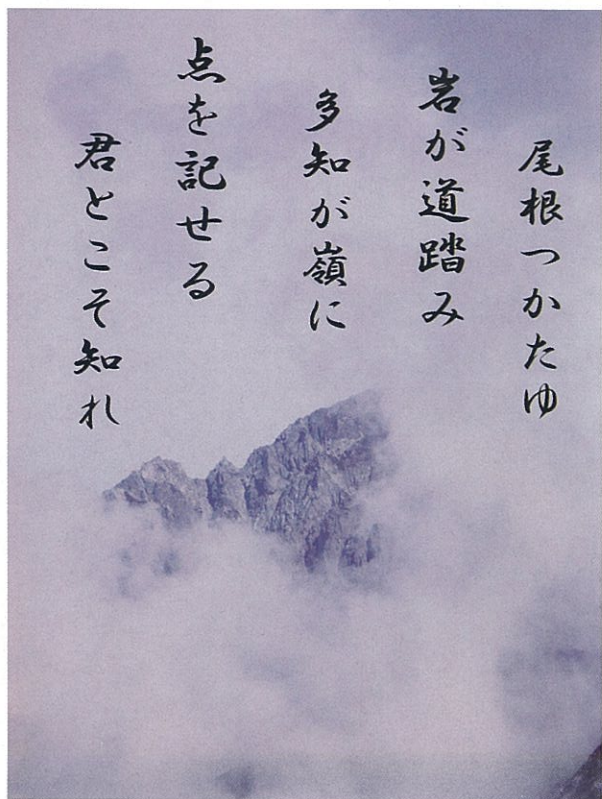 尾根つかたゆ
岩が道踏み
多知が嶺に
点を記せる
君とこそ知れ